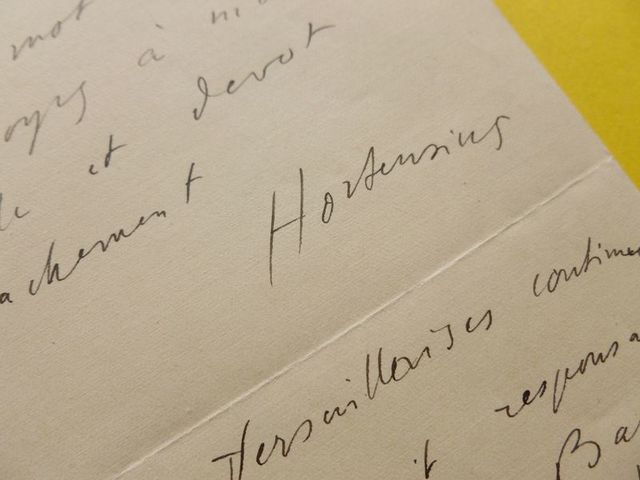 mot
à
et devot
achement
Hortensius
Versaillaises continue
it responsa
Ba